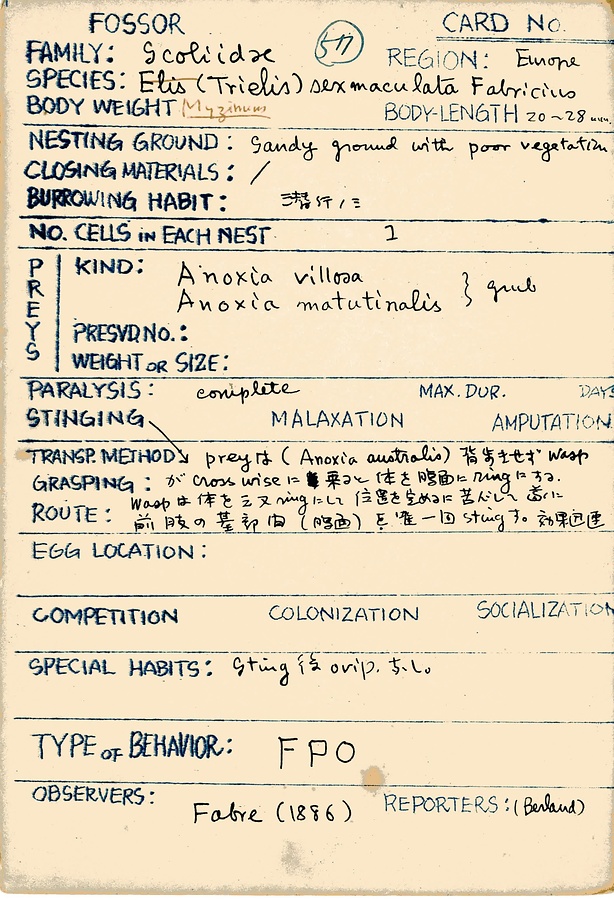 FOSSOR CARD NO.
FAMILY: Scoliidae 517 REGION: Europe
SPECIES: Elis (Trielis) sexmaculata Fabricius
BODY WEIGHT Myzinum BODY-LENGTH 20~28 mm.
NESTING GROUND: Sandy ground with poor vegetation
CLOSING MATERIALS: /
BURROWING HABIT: 潜行
NO. CELLS in EACH NEST 1
PREYS
KIND: Anoxia villosa
Anoxia matutinalis } grub
PRESVD NO.:
WEIGHT or SIZE:
PARALYSIS: complete MAX. DUR. DAYS
STINGING MALAXATION AMPUTATION
TRANSP. METHOD preyは (Anoxia australis) 背歩きせず wasp
GRASPING: が cross wise に 乗ると 体を腹面に ringにする.
Waspは体を 又 ringにして 位置を定めるに苦心して 遂に
ROUTE: 前肢の基部間 (腹面) を唯一回 stingす。効果迅速
EGG LOCATION:
COMPETITION COLONIZATION SOCIALIZATION
SPECIAL HABITS: Sting後 ovip. なし。
TYPE OF BEHAVIOR: FPO
OBSERVERS: Fabre (1886) REPORTERS: (Berland)